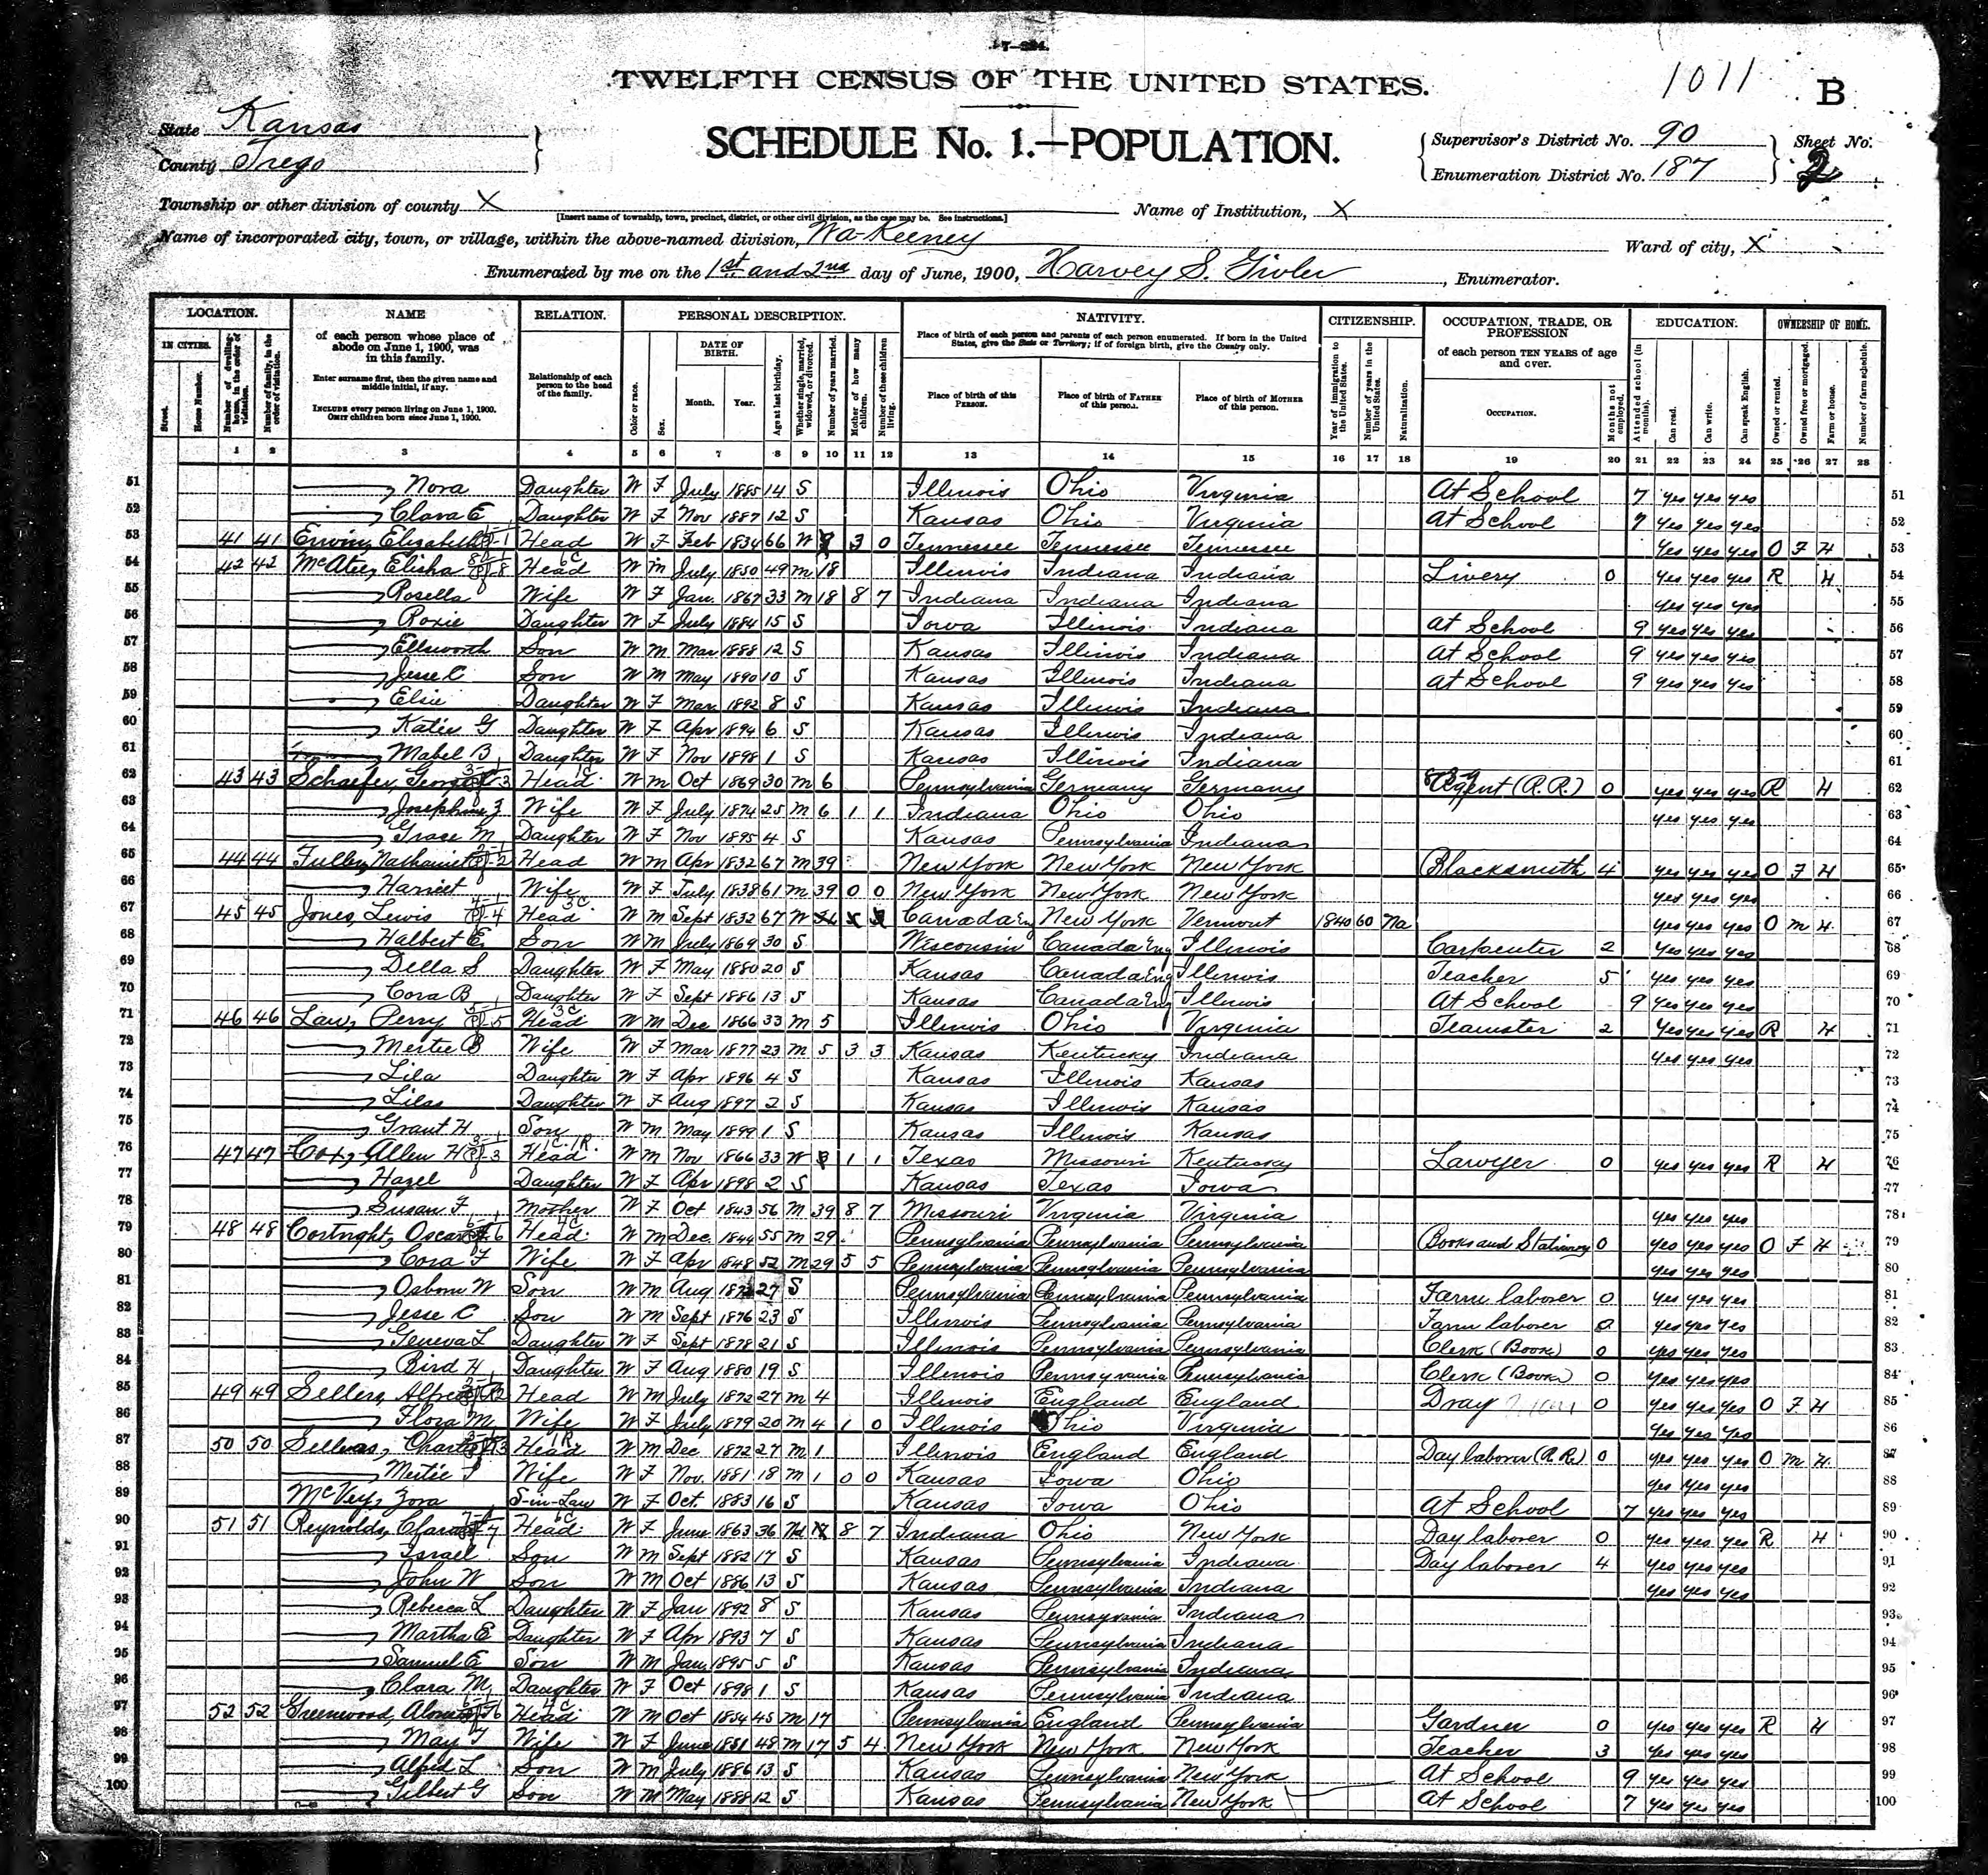 TWELFTH CENSUS OF THE UNITED STATES.
1011
B
State Kansas
County Trego
SCHEDULE No. 1.—POPULATION.
Supervisor's District No. 90
Enumeration District No. 187
Sheet No.
2
Township or other division of county X
[Insert name of township, town, precinct, district, or other civil division, as the case may be. See instructions.]
Name of Institution, X
Name of incorporated city, town, or village, within the above-named division, Wa-Keeney
Ward of city, X
Enumerated by me on the 1st and 2nd day of June, 1900, Harvey S. Givler, Enumerator.
LOCATION. NAME RELATION. PERSONAL DESCRIPTION. NATIVITY. CITIZENSHIP. OCCUPATION, TRADE, OR PROFESSION EDUCATION. OWNERSHIP OF HOME.
IN CITIES.
Street.
House Number.
Number of dwelling-house, in the order of visitation.
Number of family, in the order of visitation.
of each person whose place of abode on June 1, 1900, was in this family.
Enter surname first, then the given name and middle initial, if any.
INCLUDE every person living on June 1, 1900.
OMIT children born since June 1, 1900.
Relationship of each person to the head of the family.
Color or race.
Sex.
DATE OF BIRTH.
Month. Year.
Age at last birthday.
Whether single, married, widowed, or divorced.
Number of years married.
Mother of how many children.
Number of these children living.
Place of birth of each person and parents of each person enumerated. If born in the United States, give the State or Territory; if of foreign birth, give the Country only.
Place of birth of this PERSON.
Place of birth of FATHER of this person.
Place of birth of MOTHER of this person.
Year of immigration to the United States.
Number of years in the United States.
Naturalization.
of each person TEN YEARS of age and over.
OCCUPATION.
Months not employed.
Attended school (in months).
Can read.
Can write.
Can speak English.
Owned or rented.
Owned free or mortgaged.
Farm or house.
Number of farm schedule.
1 2 3 4 5 6 7 8 9 10 11 12 13 14 15 16 17 18 19 20 21 22 23 24 25 26 27 28
51 Nora Daughter W F July 1885 14 S Illinois Ohio Virginia At School 7 yes yes yes 51
52 Clara E Daughter W F Nov 1887 12 S Kansas Ohio Virginia At School 7 yes yes yes 52
53 41 41 Erwin, Elizabeth Head W F Feb 1834 66 W 3 0 Tennessee Tennessee Tennessee yes yes yes O F H 53
54 42 42 McAtee, Elisha Head W M July 1850 49 M 18 Illinois Indiana Indiana Livery 0 yes yes yes R H 54
55 Rosella Wife W F Jan. 1867 33 M 18 8 7 Indiana Indiana Indiana yes yes yes 55
56 Roxie Daughter W F July 1884 15 S Iowa Illinois Indiana At School 9 yes yes yes 56
57 Ellsworth Son W M Mar 1888 12 S Kansas Illinois Indiana At School 9 yes yes yes 57
58 Jesse C Son W M May 1890 10 S Kansas Illinois Indiana At School 9 yes yes yes 58
59 Elsie Daughter W F Mar 1892 8 S Kansas Illinois Indiana 59
60 Katie G Daughter W F Apr 1894 6 S Kansas Illinois Indiana 60
61 Mabel B Daughter W F Nov 1898 1 S Kansas Illinois Indiana 61
62 43 43 Schaefer, George Head W M Oct 1869 30 M 6 Pennsylvania Germany Germany Agent (R.R.) 0 yes yes yes R H 62
63 Josephine Z Wife W F July 1874 25 M 6 1 1 Indiana Ohio Ohio yes yes yes 63
64 Grace M Daughter W F Nov 1895 4 S Kansas Pennsylvania Indiana 64
65 44 44 Fuller, Nathaniel Head W M Apr 1832 67 M 39 New York New York New York Blacksmith 4 yes yes yes O F H 65
66 Harriet Wife W F July 1838 61 M 39 0 0 New York New York New York yes yes yes 66
67 45 45 Jones, Lewis Head W M Sept 1832 67 W Canada Eng New York Vermont 1840 60 Na yes yes yes O M H 67
68 Halbert E. Son W M July 1869 30 S Wisconsin Canada Eng Illinois Carpenter 2 yes yes yes 68
69 Della S Daughter W F May 1880 20 S Kansas Canada Eng Illinois Teacher 5 yes yes yes 69
70 Cora B Daughter W F Sept 1886 13 S Kansas Canada Eng Illinois At School 9 yes yes yes 70
71 46 46 Law, Perry Head W M Dec 1866 33 M 5 Illinois Ohio Virginia Teamster 2 yes yes yes R H 71
72 Mertie B Wife W F Mar 1877 23 M 5 3 3 Kansas Kentucky Indiana yes yes yes 72
73 Lila Daughter W F Apr 1896 4 S Kansas Illinois Kansas 73
74 Lilas Daughter W F Aug 1897 2 S Kansas Illinois Kansas 74
75 Grant H Son W M May 1899 1 S Kansas Illinois Kansas 75
76 47 47 Cox, Allen H Head W M Nov 1866 33 W 1 1 Texas Missouri Kentucky Lawyer 0 yes yes yes R H 76
77 Hazel Daughter W F Apr 1898 2 S Kansas Texas Iowa 77
78 Susan F Mother W F Oct 1843 56 M 39 8 7 Missouri Virginia Virginia yes yes yes 78
79 48 48 Cortright, Oscar Head W M Dec. 1844 55 M 29 Pennsylvania Pennsylvania Pennsylvania Books and Stationery 0 yes yes yes O F H 79
80 Cora F Wife W F Apr 1848 52 M 29 5 5 Pennsylvania Pennsylvania Pennsylvania yes yes yes 80
81 Osborn W Son W M Aug 27 S Pennsylvania Pennsylvania Pennsylvania Farm laborer 0 yes yes yes 81
82 Jesse C Son W M Sept 1876 23 S Illinois Pennsylvania Pennsylvania Farm laborer yes yes yes 82
83 Geneva L Daughter W F Sept 1878 21 S Illinois Pennsylvania Pennsylvania Clerk (Book) 0 yes yes yes 83
84 Bird H Daughter W F Aug 1880 19 S Illinois Pennsylvania Pennsylvania Clerk (Book) 0 yes yes yes 84
85 49 49 Sellers, Head W M July 1872 27 M 4 Illinois England England Dray man 0 yes yes yes O F H 85
86 Flora M, Wife W F July 1879 20 M 4 1 0 Illinois Ohio Virginia yes yes yes 86
87 50 50 Charles Head W M Dec 1872 27 M 1 Illinois England England Day laborer (R.R.) 0 yes yes yes O M H 87
88 Mertie Wife W F Nov. 1881 18 M 1 0 0 Kansas Iowa Ohio yes yes yes 88
89 McVey, Zora S-in-Law W F Oct. 1883 16 S Kansas Iowa Ohio At School 7 yes yes yes 89
90 51 51 Reynolds, Clara Head W F June 1863 36 Wd 8 7 Indiana Ohio New York Day laborer 0 yes yes yes R H 90
91 Israel Son W M Sept 1882 17 S Kansas Pennsylvania Indiana Day laborer 4 yes yes yes 91
92 John W Son W M Oct 1886 13 S Kansas Pennsylvania Indiana yes yes yes 92
93 Rebecca L Daughter W F Jan 1892 8 S Kansas Pennsylvania Indiana 93
94 Martha E Daughter W F Apr 1893 7 S Kansas Pennsylvania Indiana 94
95 Samuel E Son W M Jan 1895 5 S Kansas Pennsylvania Indiana 95
96 Clara M, Daughter W F Oct 1898 1 S Kansas Pennsylvania Indiana 96
97 52 52 Greenwood, Head W M Oct 1854 45 M 17 Pennsylvania England Pennsylvania Gardner 0 yes yes yes R H 97
98 May Wife W F June 1851 48 M 17 5 4 New York New York New York Teacher 3 yes yes yes 98
99 Alfred L Son W M July 1886 13 S Kansas Pennsylvania New York At School 9 yes yes yes 99
100 Gilbert G Son W M May 1888 12 S Kansas Pennsylvania New York At School 7 yes yes yes 100